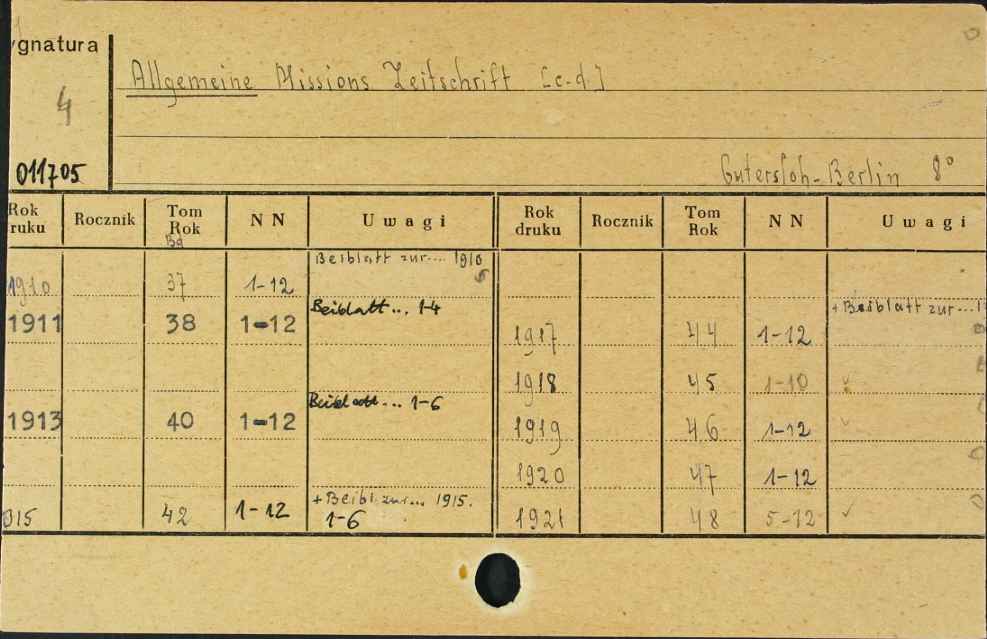 ygnatura
Allgemeine Missions Zeitschrift [c.d.]
4
011705
Gutersloh-Berlin 8°
Rok druku Rocznik Tom Rok NN Uwagi Rok druku Rocznik Tom Rok NN Uwagi
Bd
Beiblatt zur... 1910
1910 37 1-12
Beiblatt... 1-4 + Beiblatt zur...
1911 38 1-12 1917 44 1-12
1918 45 1-10
Beiblatt... 1-6
1913 40 1-12 1919 46 1-12
1920 47 1-12
+ Beibl. zur... 1915.
915 42 1-12 1-6 1921 48 5-12